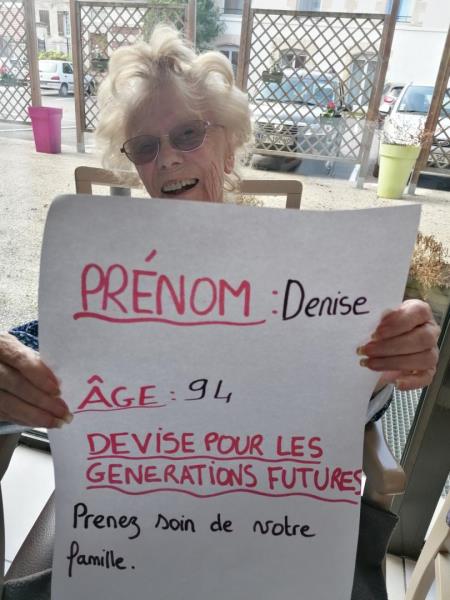 PRÉNOM : Denise
ÂGE : 94
DEVISE POUR LES
GENERATIONS FUTURES
Prenez soin de votre
famille.